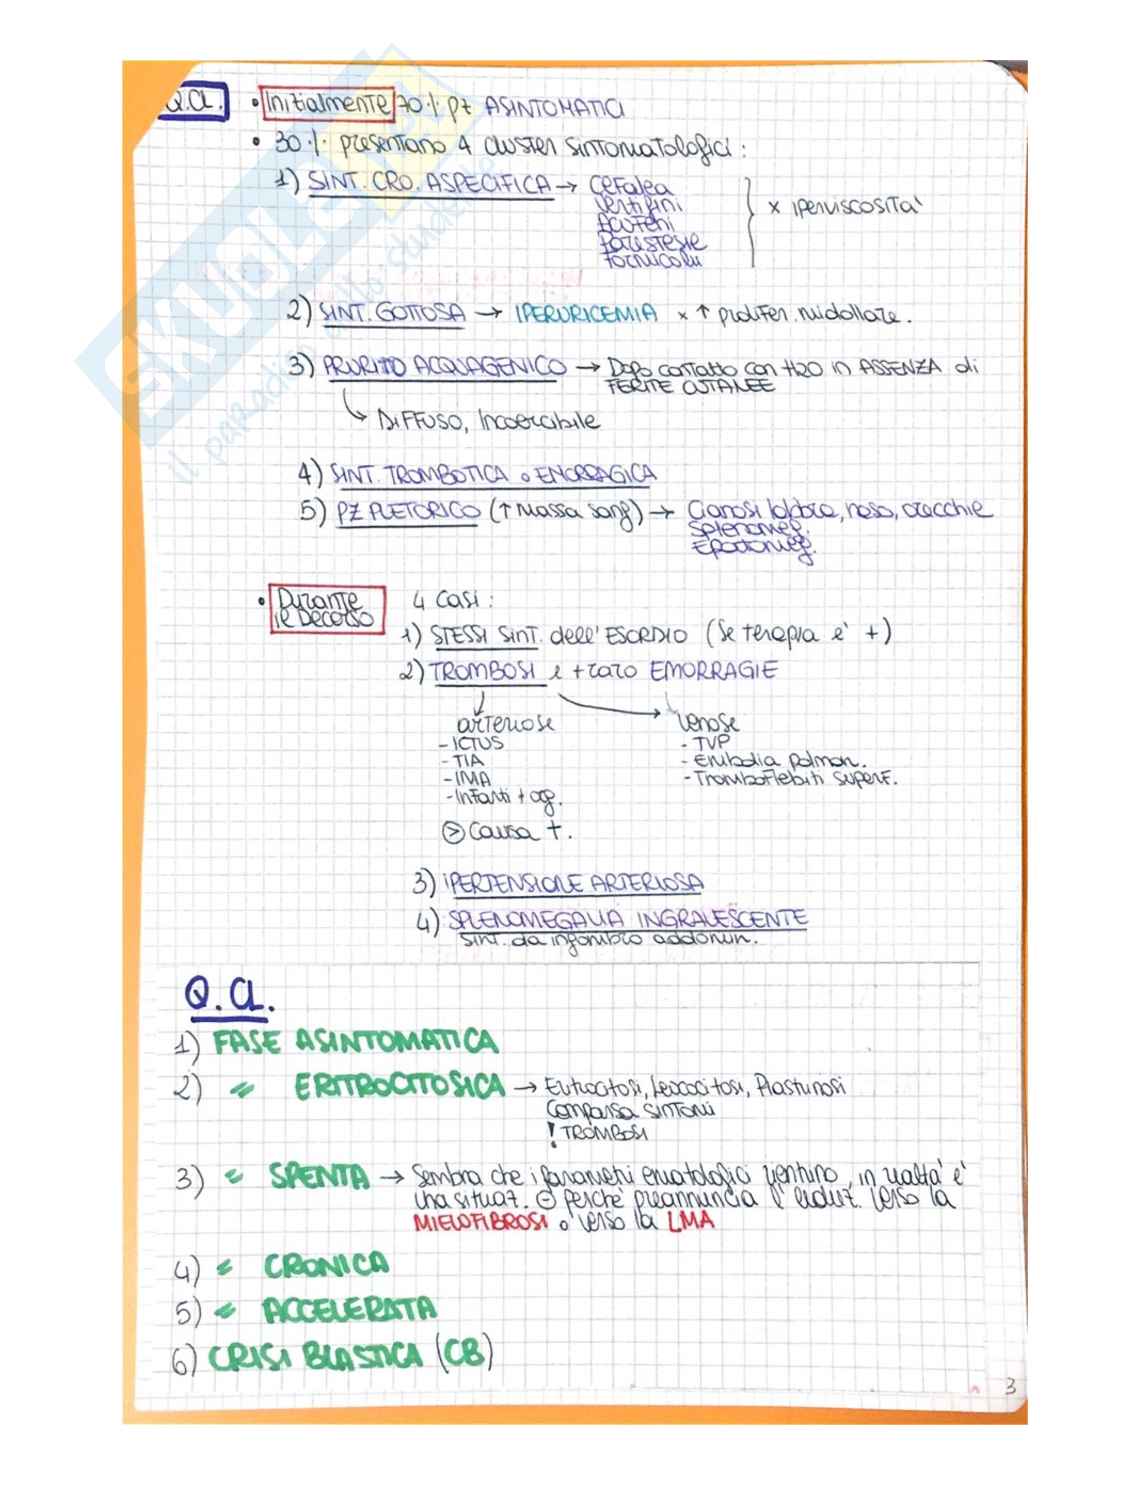 Q.CL. • Inizialmente 70% pz ASINTOMATICI
• 30% presentano 4 cluster sintomatologici:
1) SINT. CRO. ASPECIFICA → Cefalea
Vertigini
Acufeni
Parestesie
Formicolii
} x iperviscosità
2) SINT. GOTTOSA → IPERURICEMIA x ↑ prolifer. midollare.
3) PRURITO ACQUAGENICO → Dopo contatto con H2O in ASSENZA di
FERITE CUTANEE
↳ DIFFUSO, Incoercibile
4) SINT. TROMBOTICA o EMORRAGICA
5) PZ PLETORICO (↑ Massa sang) → Cianosi labbra, naso, orecchie
Splenomeg.
Epatomeg.
• Durante il Decorso
4 Casi:
1) STESSI SINT. dell'ESORDIO (Se terapia è +)
2) TROMBOSI e + raro EMORRAGIE
arteriose
- ICTUS
- TIA
- IMA
- Infarti + og.
> Causa †.
Venose
- TVP
- Embolia polmon.
- Tromboflebiti superf.
3) IPERTENSIONE ARTERIOSA
4) SPLENOMEGALIA INGRAVESCENTE
Sint. da ingombro addomin.
Q.CL.
1) FASE ASINTOMATICA
2) " ERITROCITOSICA → Eritrocitosi, Leucocitosi, Piastrinosi
Comparsa sintomi
! TROMBOSI
3) " SPENTA → Sembra che i parametri ematologici rientrino, in realtà è
una situaz. ⊖ perché preannuncia l'evoluz. verso la
MIELOFIBROSI o verso la LMA
4) " CRONICA
5) " ACCELERATA
6) CRISI BLASTICA (CB)
3
SKUOLA.net
il paradiso dello studente